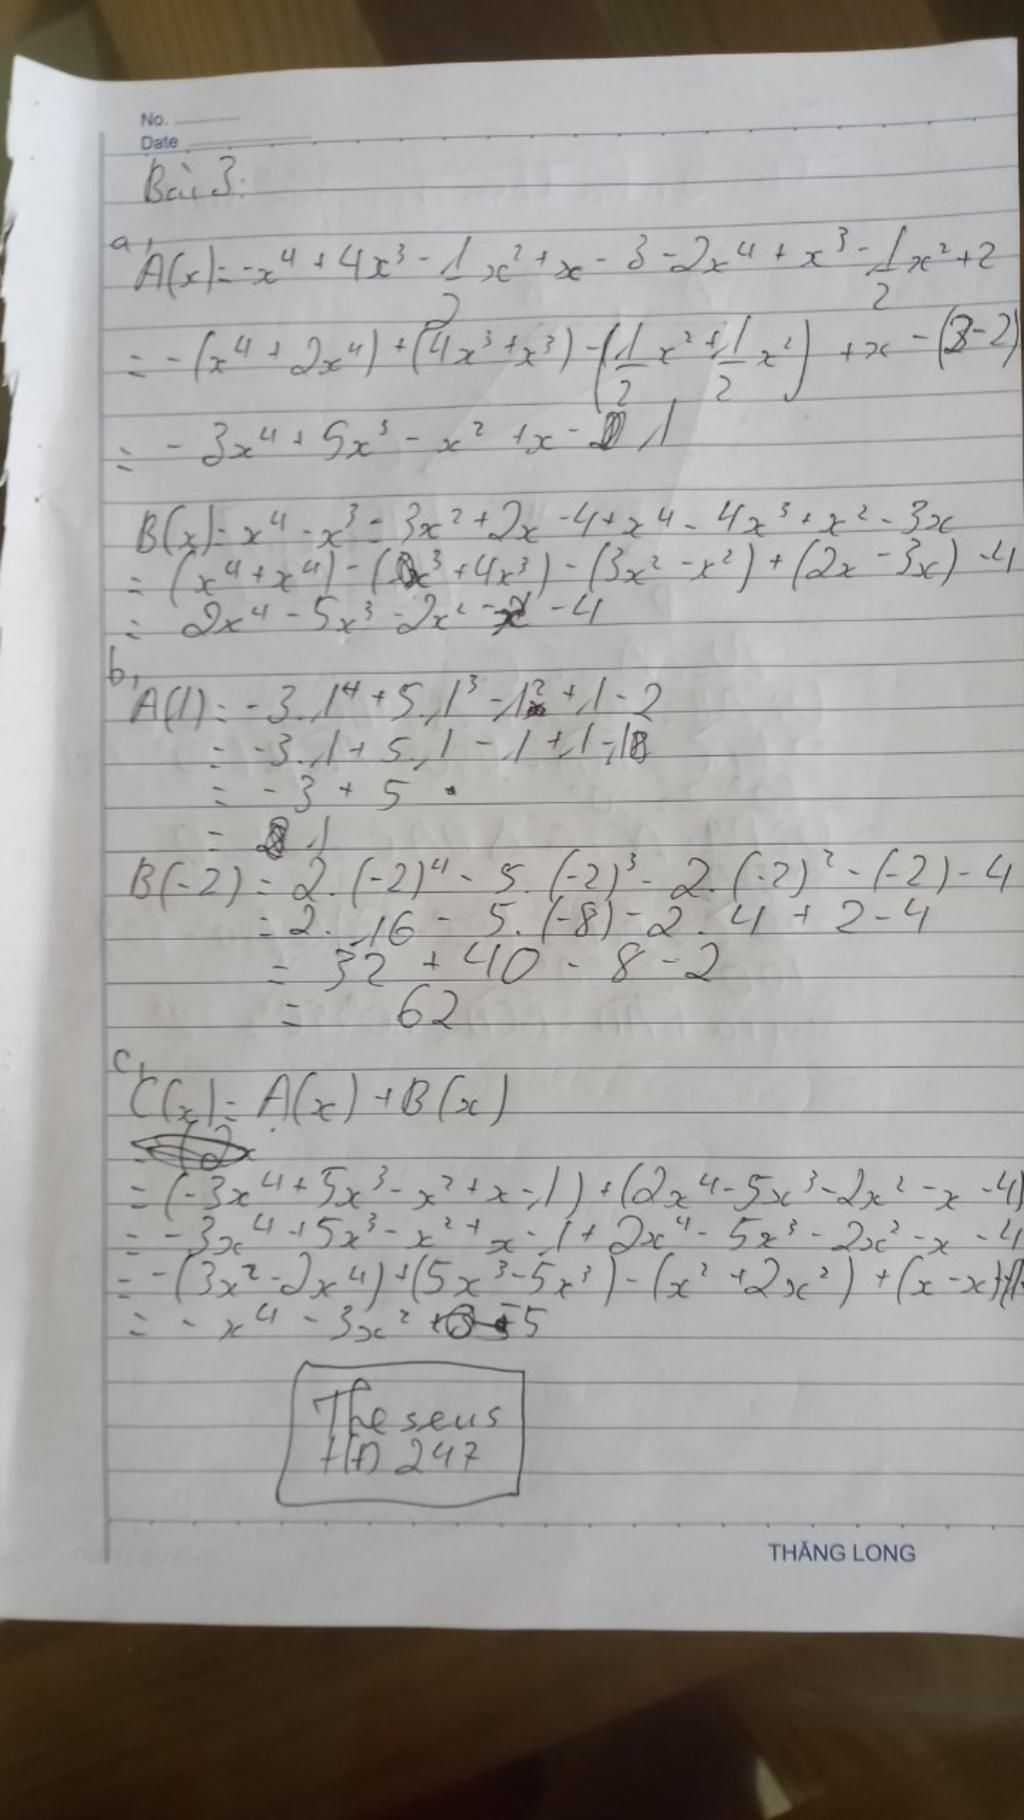 No.
Date
Bài 3:
a,
A(x) = -x⁴ + 4x³ - 1/2 x² + x - 3 - 2x⁴ + x³ - 1/2 x² + 2
= -(x⁴ + 2x⁴) + (4x³ + x³) - (1/2 x² + 1/2 x²) + x - (3 - 2)
= - 3x⁴ + 5x³ - x² + x - 1
B(x) = x⁴ - x³ - 3x² + 2x - 4 + x⁴ - 4x³ + x² - 3x
= (x⁴ + x⁴) - (x³ + 4x³) - (3x² - x²) + (2x - 3x) - 4
= 2x⁴ - 5x³ - 2x² - x - 4
b,
A(1) = -3.1⁴ + 5.1³ - 1² + 1 - 2
= -3.1 + 5.1 - 1 + 1 - 1
= -3 + 5
= 1
B(-2) = 2.(-2)⁴ - 5.(-2)³ - 2.(-2)² - (-2) - 4
= 2.16 - 5.(-8) - 2.4 + 2 - 4
= 32 + 40 - 8 - 2
= 62
c,
C(x) = A(x) + B(x)
= (-3x⁴ + 5x³ - x² + x - 1) + (2x⁴ - 5x³ - 2x² - x - 4)
= -3x⁴ + 5x³ - x² + x - 1 + 2x⁴ - 5x³ - 2x² - x - 4
= -(3x² - 2x⁴) + (5x³ - 5x³) - (x² + 2x²) + (x - x)
= - x⁴ - 3x² - 5
Theseus
HD 247
THĂNG LONG